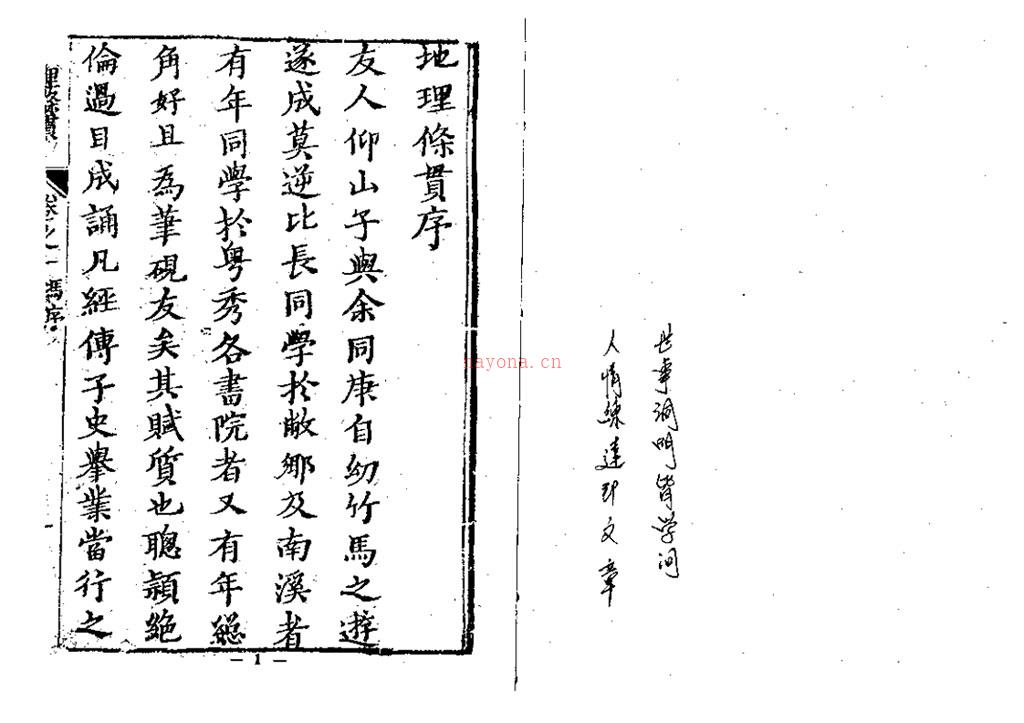 世事洞明皆学问
人情练达即文章
地理條貫序
友人仰山子與余同庚自幼竹馬之遊
遂成莫逆比長同學於敝鄉及南溪者
有年同學於粤秀各書院者又有年總
角好且為筆硯友矣其賦質也聰頴絶
倫過目成誦凡經傳子史擧業當行之
理條貫
卷之一
馮序
— 1 —
nayona.cn